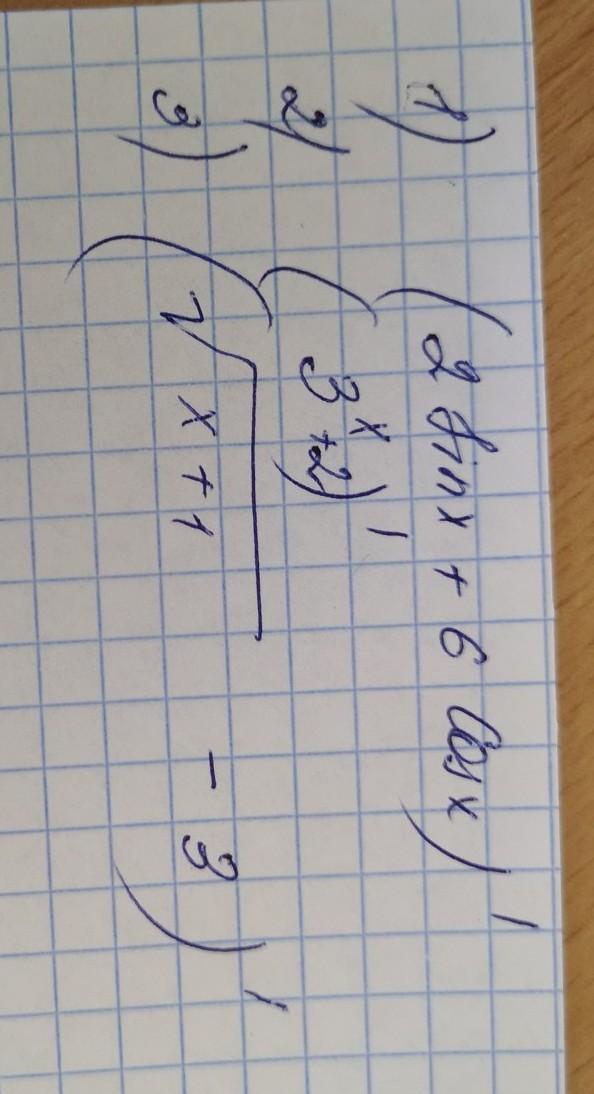 1) (2 sin x + 6 cos x)'
2) (3^x + 2)'
3) (√(x + 1) - 3)'